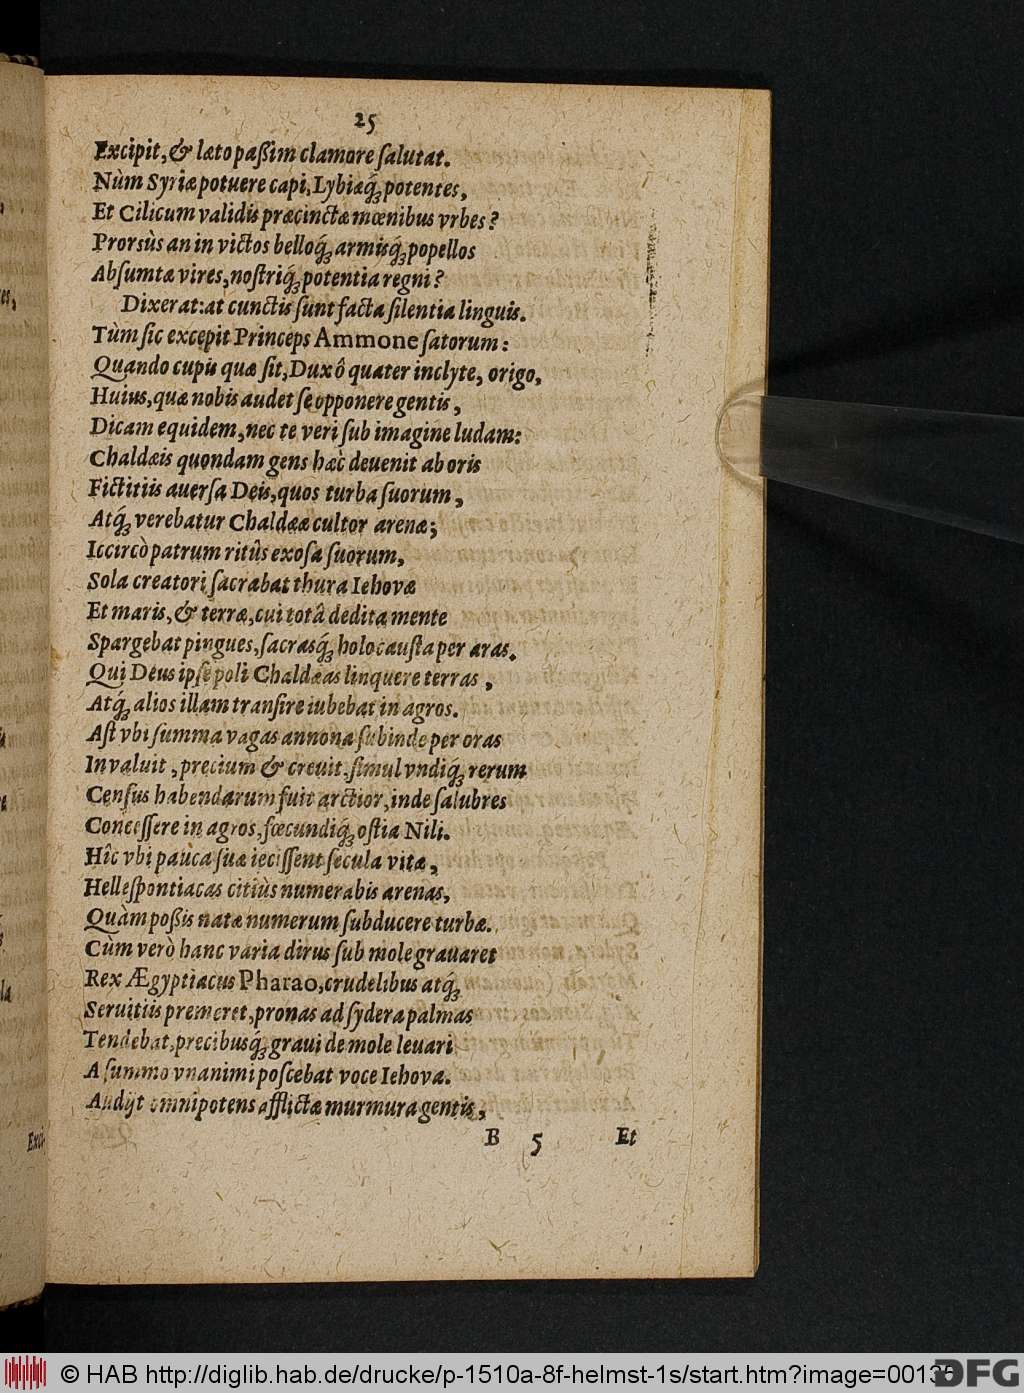 25
Excipit, & læto paßim clamore ſalutat.
Nùm Syriæ potuere capi, Lybiæq́ꝫ potentes,
Et Cilicum validis præcinctæ mœnibus vrbes?
Prorsùs an in victos belloq́ꝫ armisq́ꝫ popellos
Abſumtæ vires, noſtriq́ꝫ potentia regni?
Dixerat: at cunctis ſunt facta ſilentia linguis.
Tùm ſic excepit Princeps Ammone ſatorum:
Quando cupis quæ ſit, Dux ô quater inclyte, origo,
Huius, quæ nobis audet ſe opponere gentis,
Dicam equidem, nec te veri ſub imagine ludam:
Chaldæis quondam gens hæc deuenit ab oris
Fictitiis auerſa Deis, quos turba ſuorum,
Atq́ꝫ verebatur Chaldææ cultor arenæ;
Iccircò patrum ritûs exoſa ſuorum,
Sola creatori ſacrabat thura Iehovæ
Et maris, & terræ, cui totâ dedita mente
Spargebat pingues, ſacrasq́ꝫ holocauſta per aras.
Qui Deus ipſe poli Chaldæas linquere terras,
Atq́ꝫ alios illam tranſire iubebat in agros.
Aſt vbi ſumma vagas annona ſubinde per oras
Invaluit, precium & creuit. ſimul vndiq́ꝫ rerum
Cenſus habendarum fuit arctior, inde ſalubres
Conceſſere in agros, fœcundiq́ꝫ oſtia Nili.
Hîc vbi pauca ſuæ ieciſſent ſecula vitæ,
Helleſpontiacas citiùs numerabis arenas,
Quàm poßis natæ numerum ſubducere turbæ.
Cùm verò hanc varia dirus ſub mole grauaret
Rex Ægyptiacus Pharao, crudelibus atq́ꝫ
Seruitiis premeret, pronas ad ſydera palmas
Tendebat, precibusq́ꝫ graui de mole leuari
A ſummo vnanimi poſcebat voce Iehova.
Audijt omnipotens afflictæ murmura gentis,
B 5 Et
Exci-
© HAB http://diglib.hab.de/drucke/p-1510a-8f-helmst-1s/start.htm?image=00135
DFG